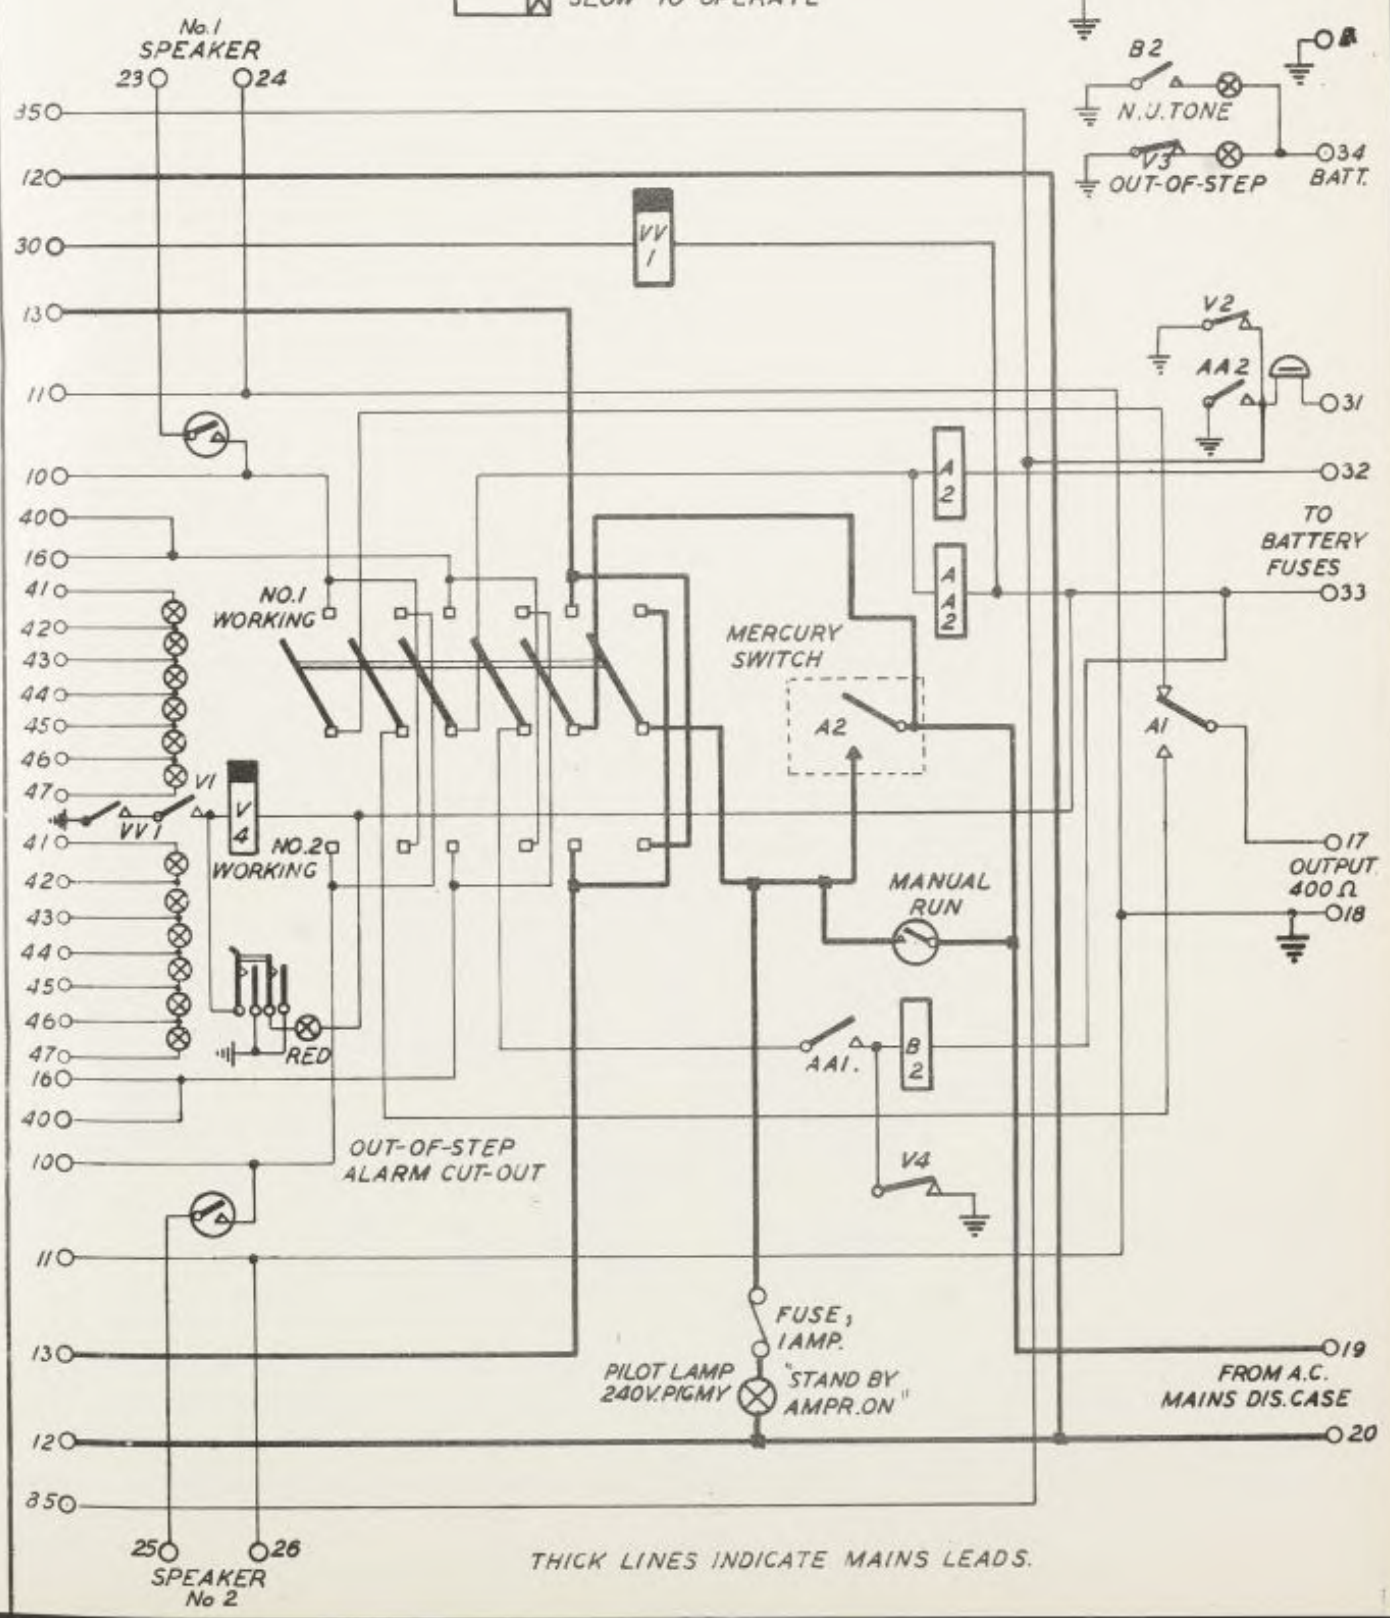 SLOW TO OPERATE
No.1
SPEAKER
23 24
A
B2
N.U.TONE
V3
34
OUT-OF-STEP BATT.
35
12
30
VV
1
13
V2
AA2
31
11
10
A
2
32
40
TO
BATTERY
FUSES
16
A
A
2
33
41
NO.1
WORKING
42
43
44
45
46
47
MERCURY
SWITCH
A2
A1
V1
VV1
V
4
NO.2
WORKING
41
42
43
44
45
46
47
RED
MANUAL
RUN
17
OUTPUT
400 Ω
18
AA1.
B
2
16
40
10
OUT-OF-STEP
ALARM CUT-OUT
V4
11
FUSE,
1 AMP.
13
PILOT LAMP
240V.PIGMY
"STAND BY
AMPR.ON"
19
FROM A.C.
MAINS DIS.CASE
12
20
35
25 26
SPEAKER
No 2
THICK LINES INDICATE MAINS LEADS.